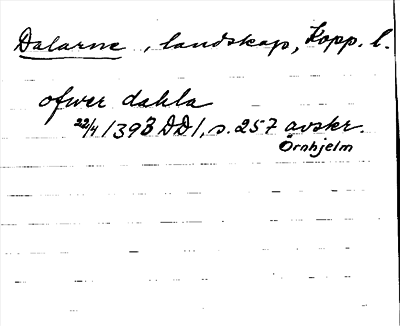 Dalarne, landskap, Kopp. l.
ofwer dahla
22/4 1393 DD1, s. 257 avskr.
Örnhjelm